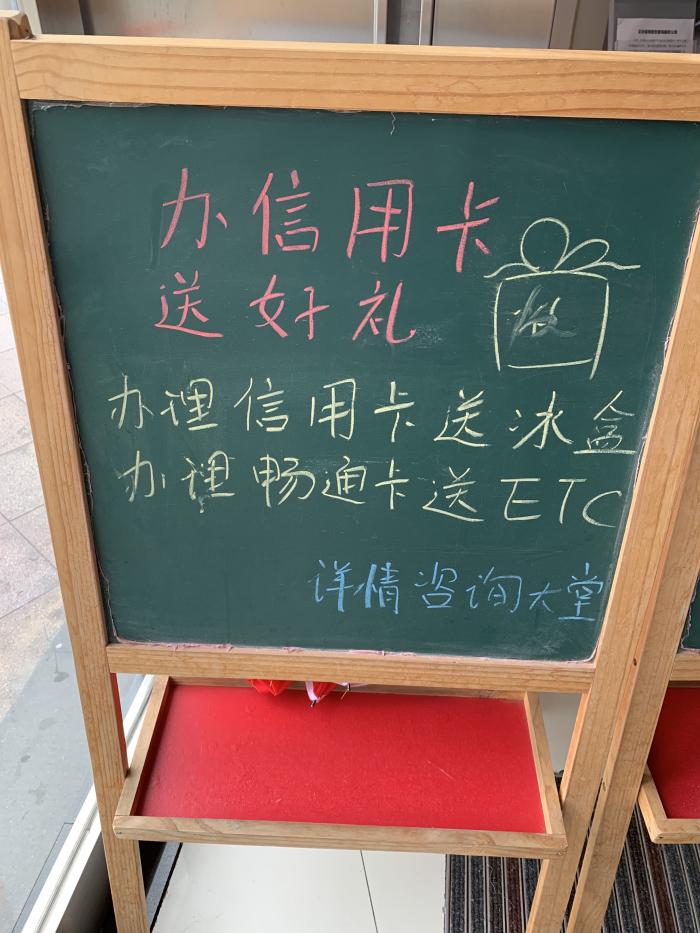 办信用卡
送好礼
办理信用卡送冰盒
办理畅通卡送ETC
详情咨询大堂